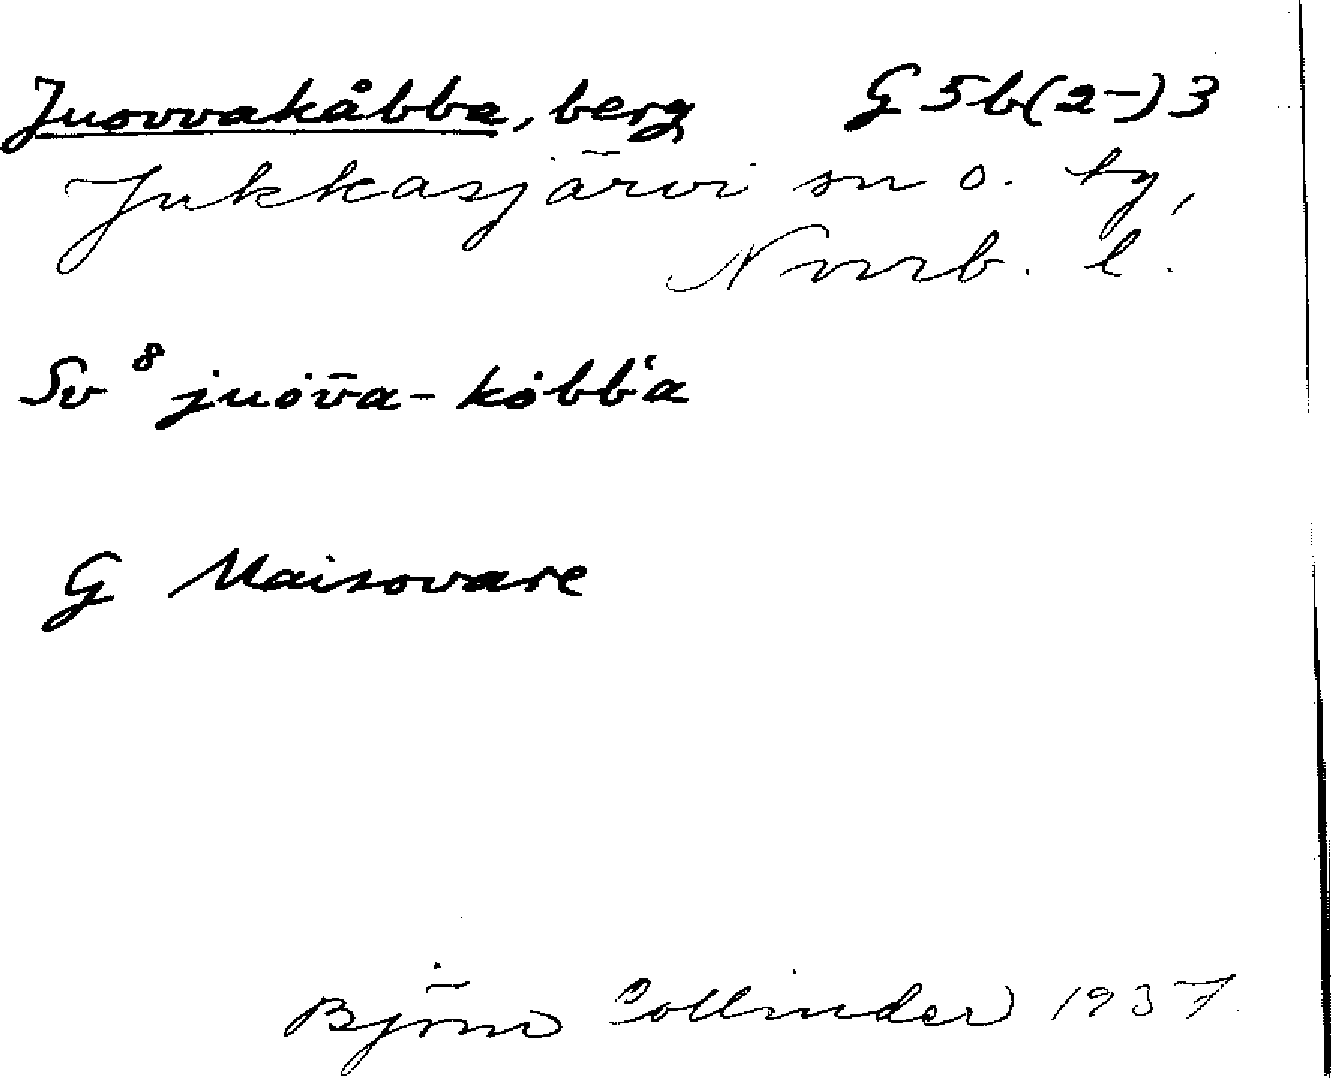 Juovvakåbba, berg G 5b(2-)3
Jukkasjärvi sn o. tg,
Norrb. l.
Sv 8 juȯv̄a-kȯbb'a
G Maisovare
Björn Collinder 1937